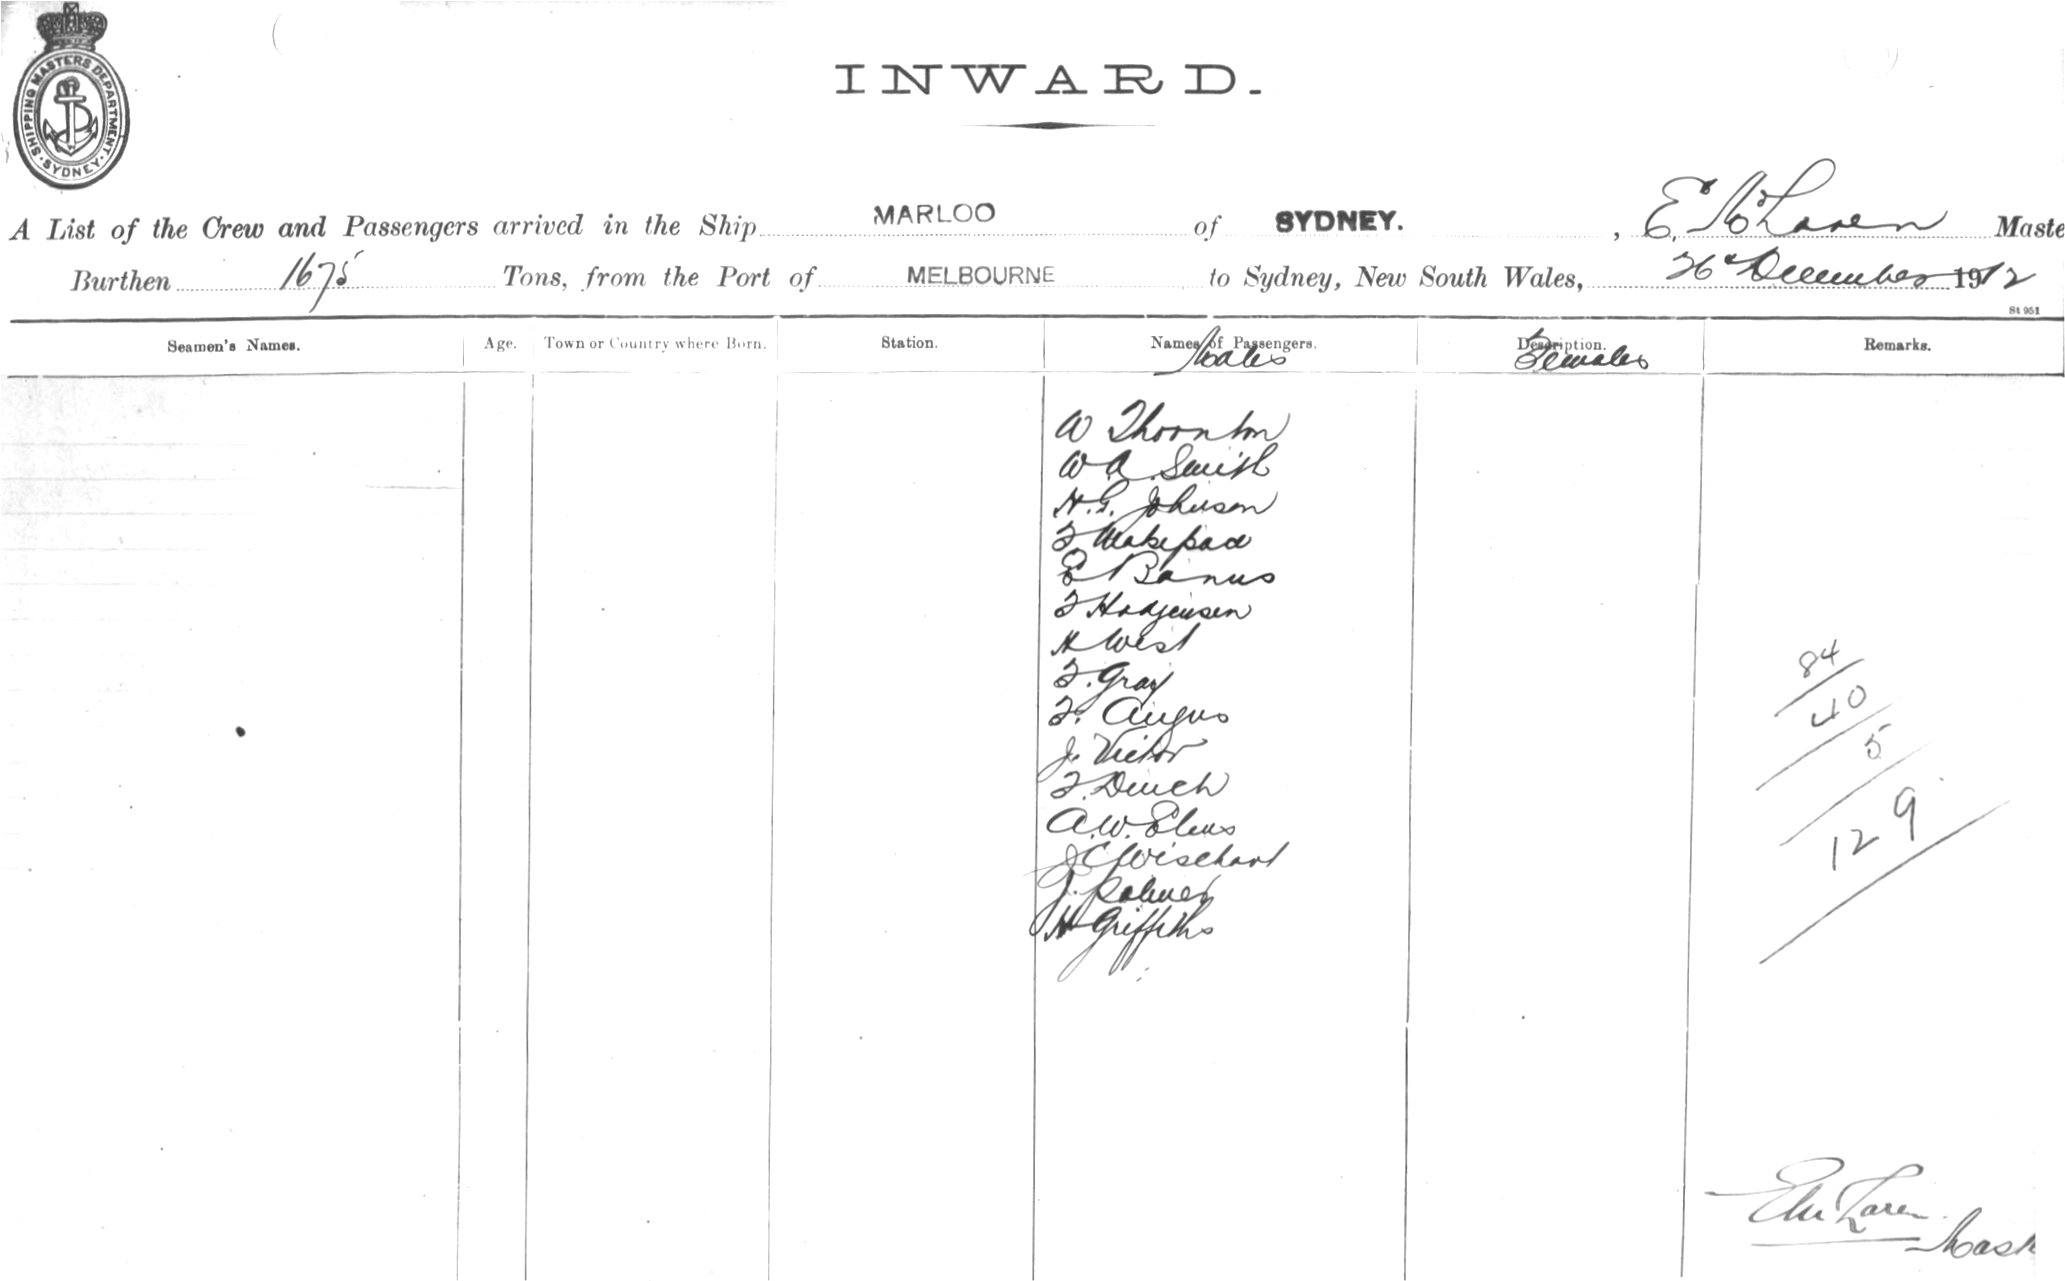 SHIPPING MASTERS DEPARTMENT
SYDNEY
INWARD.
A List of the Crew and Passengers arrived in the Ship MARLOO of SYDNEY. , E. McLaren Maste
Burthen 1675 Tons, from the Port of MELBOURNE to Sydney, New South Wales, 26th December 1912
St 951
Seamen's Names. Age. Town or Country where Born. Station. Names of Passengers. Description. Remarks.
Males Females
W Thornton
W A. Smith
H. G. Johnson
F Makepace
E Banus
F Hodjensen
H West
F. Gray
F. Angus
J. Victor
F.
A. W.
J C Wisehart
J. Palmer
H Griffiths
84
40
5
129
E McLaren
Mast